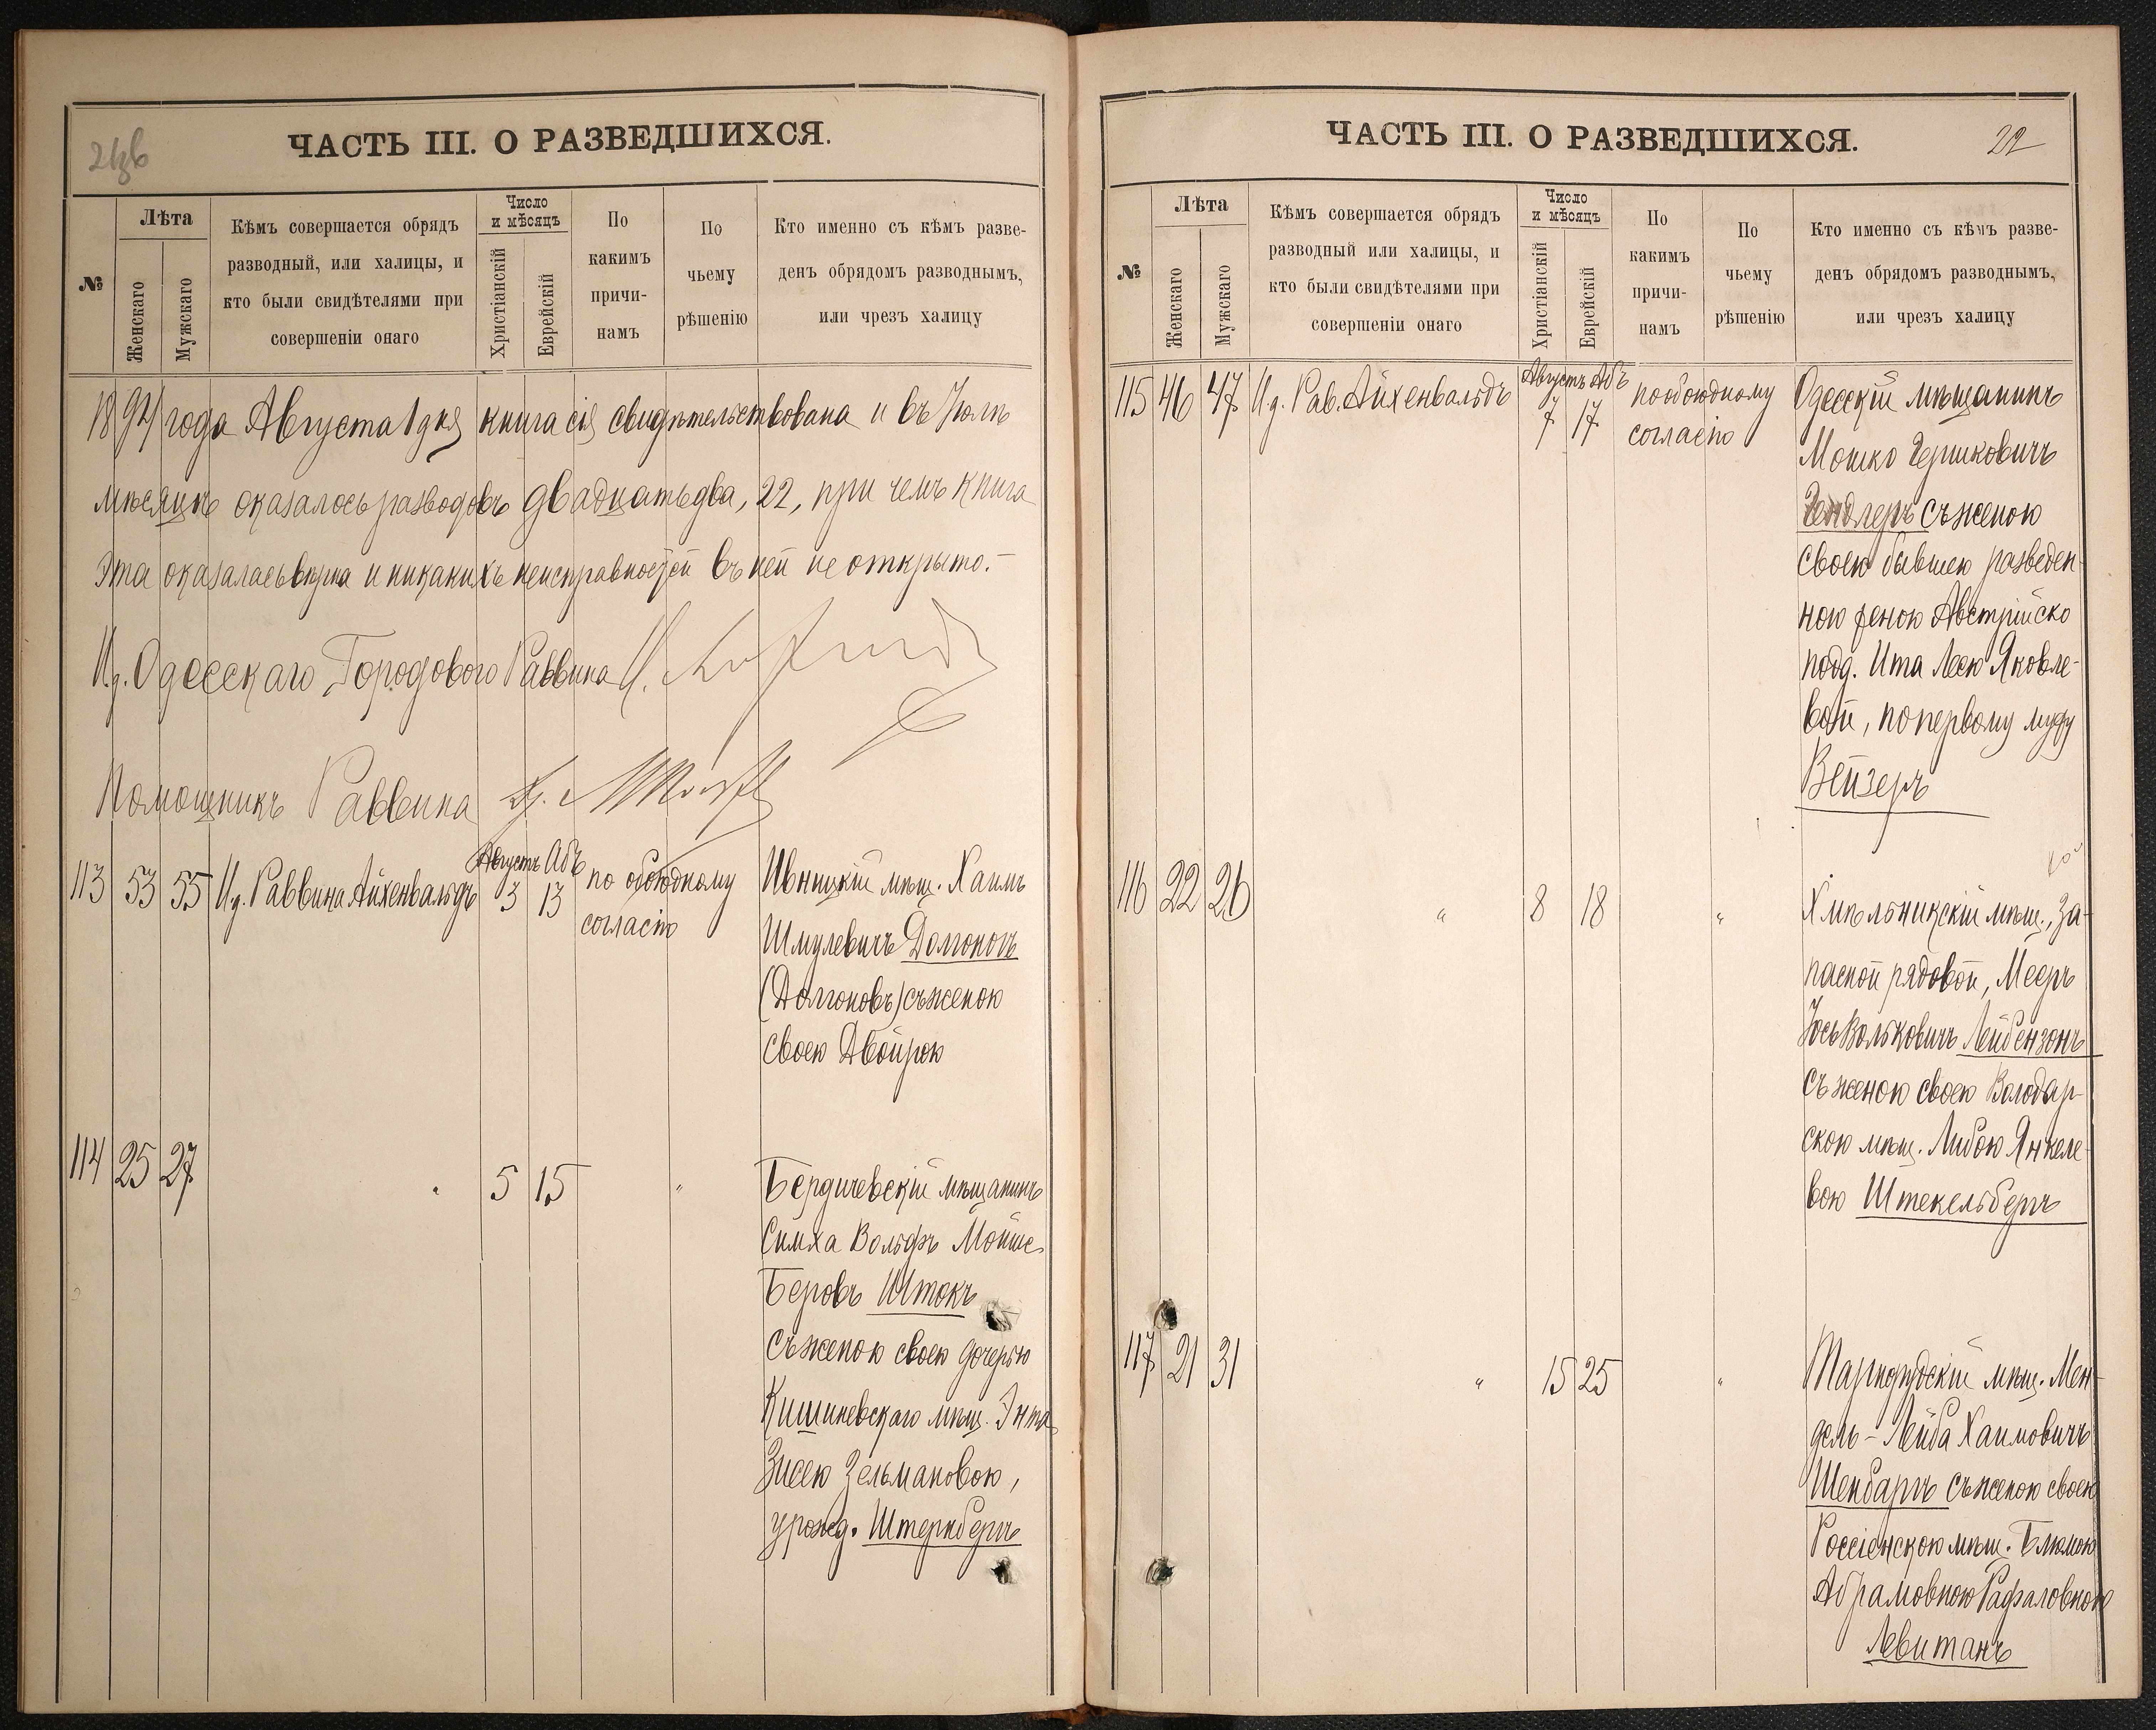 ЧАСТЬ III. О РАЗВЕДШИХСЯ.
№
Лѣта
Женскаго
Мужскаго
Кѣмъ совершается обрядъ
разводный, или халицы, и
кто были свидѣтелями при
совершеніи онаго
Число
и мѣсяцъ
Христіанскій
Еврейскій
По
какимъ
причи-
намъ
По
чьему
рѣшенію
Кто именно съ кѣмъ разве-
денъ обрядомъ разводнымъ,
или чрезъ халицу
1894 года Августа 1 дня книга сія свидѣтельствована и въ Іюлѣ
мѣсяцѣ оказалось разводовъ двадцать два, 22, при чемъ книга
эта оказалась вѣрна и никакихъ неисправностей въ ней не открыто.-
И.д. Одесскаго Городового Раввина
Помощникъ Раввина
113 53 55 И.д. Раввина Айхенвальдъ Августъ 3 Абъ 13 по обоюдному
согласію
Ивницкій мѣщ. Хаимъ
Шмулевичъ Долгоногъ
(Долгоновъ) съ женою
своею Двойрою
114 25 27 " 5 15 "
Бердичевскій мѣщанинъ
Симха Вольфъ Мойше
Беровъ Штокъ
съ женою своею дочерью
Кишиневскаго мѣщ. Энта
Зисею Зельмановою,
урожд. Штернбергъ
ЧАСТЬ III. О РАЗВЕДШИХСЯ.
22
№
Лѣта
Женскаго
Мужскаго
Кѣмъ совершается обрядъ
разводный или халицы, и
кто были свидѣтелями при
совершеніи онаго
Число
и мѣсяцъ
Христіанскій
Еврейскій
По
какимъ
причи-
намъ
По
чьему
рѣшенію
Кто именно съ кѣмъ разве-
денъ обрядомъ разводнымъ,
или чрезъ халицу
115 46 47 И.д. Рав. Айхенвальдъ Августъ 7 Абъ 17 по обоюдному
согласію
Одесскій мѣщанинъ
Мошко Гершковичъ
Гендлеръ съ женою
своею бывшею разведен-
ною женою Австрійско
подд. Ита Лею Яковле-
вой, по первому мужу
Вейзеръ
116 22 26 " 8 18 "
Хмѣльникскій мѣщ., за-
пасной рядовой, Мееръ
Іось Вольковичъ Лейбензонъ
съ женою своею Володар-
скою мѣщ. Либою Янкеле-
вою Штекельбергъ
117 21 31 " 15 25 "
мѣщ. Мен-
дель-Лейба Хаимовичъ
Шенбаргъ съ женою своею
Россіенскою мѣщ. Блюмою
Абрамовною Рафаловною
Левитанъ